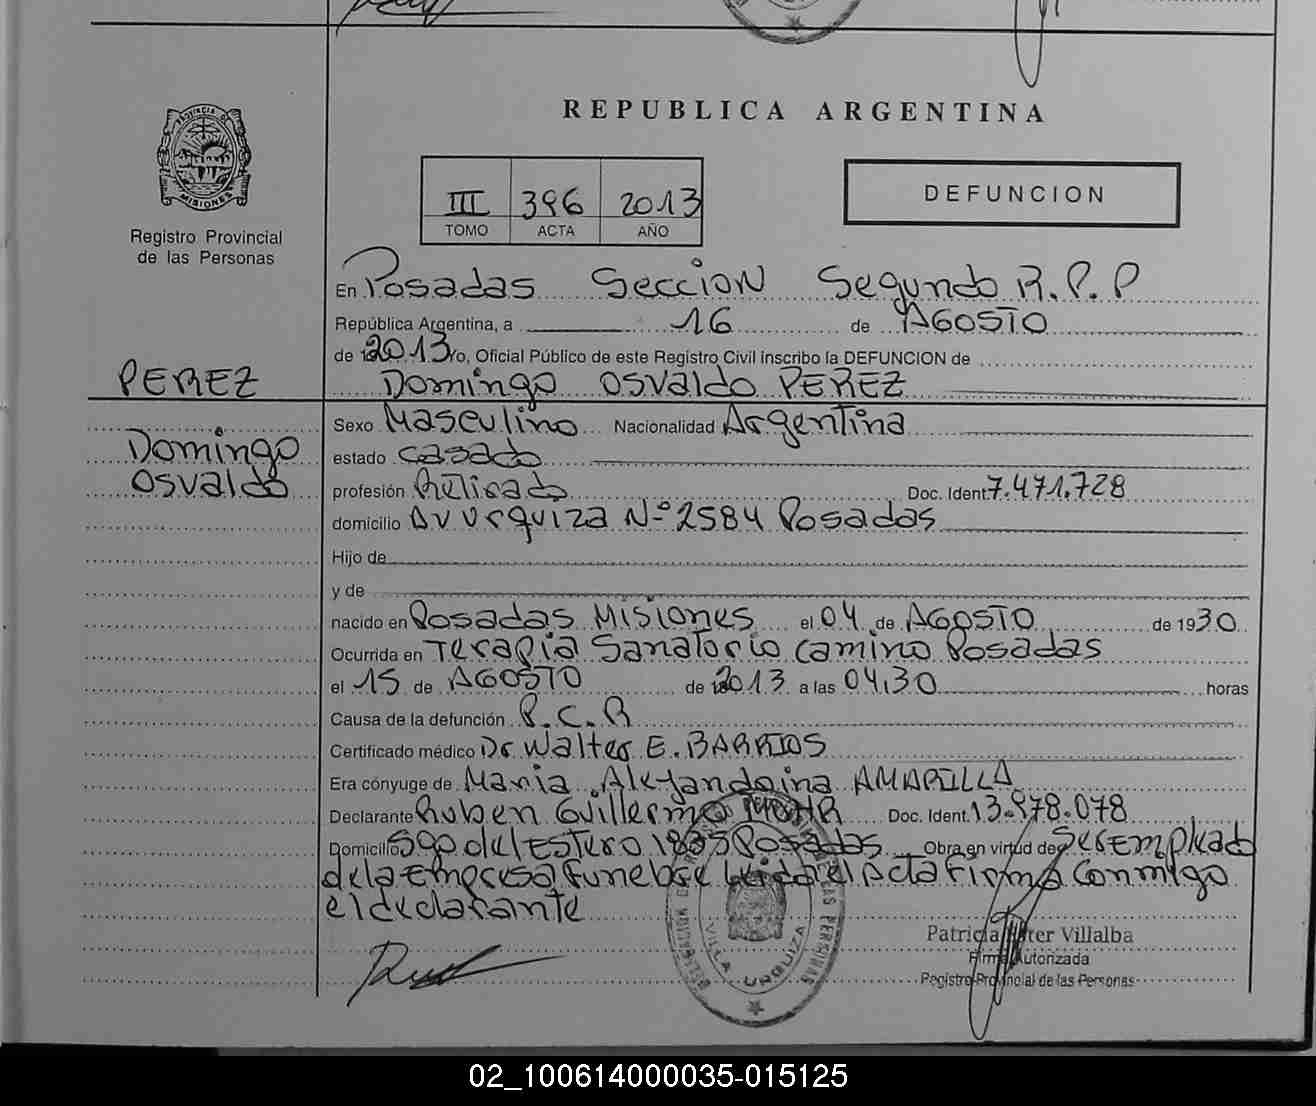 REPUBLICA ARGENTINA
PROVINCIA DE
MISIONES
Registro Provincial
de las Personas
III 396 2013
TOMO ACTA AÑO
DEFUNCION
En Posadas Seccion Segundo R.P.P
República Argentina, a 16 de AGOSTO
de 2013 yo, Oficial Público de este Registro Civil inscribo la DEFUNCION de
PEREZ
Domingo Osvaldo PEREZ
Domingo
Osvaldo
Sexo Masculino Nacionalidad Argentina
estado casado
profesión Retirado Doc. Ident. 7.471.728
domicilio Av Urquiza Nº 2584 Posadas
Hijo de
y de
nacido en Posadas Misiones el 04 de AGOSTO de 1930
Ocurrida en Terapia Sanatorio Camino Posadas
el 15 de AGOSTO de 2013 a las 04.30 horas
Causa de la defunción P.C.R
Certificado médico Dr Walter E. BARRIOS
Era cónyuge de Maria Alejandrina AMARILLA
Declarante Ruben Guillermo MOHR Doc. Ident. 13.978.078
Domicilio Sgo del Estero 1835 Posadas Obra en virtud de Ser Empleado
de la Empresa Funebre Leida el Acta Firma Conmigo
el declarante
VILLA URQUIZA
Patricia Ester Villalba
Firma Autorizada
Registro Provincial de las Personas
02_100614000035-015125